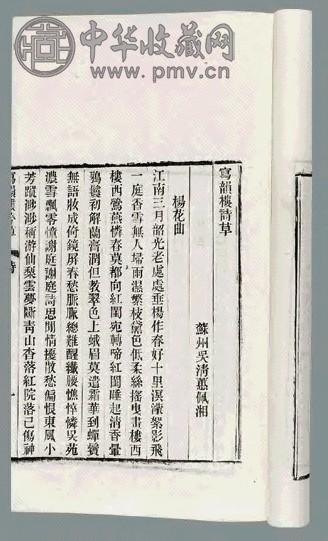 中华收藏网
www.pmv.cn
寫韻樓詩草
蘇州吳清蕙佩湘
楊花曲
江南三月韶光老處處垂楊作春好十里溟濛絮影飛
一庭香雪無人埽雨濕繁枝黛色低柔絲搖曳畫樓西
樓西鶯燕憐春莫都向紅閨宛轉啼紅閨睡起清香暈
鴉鬟初解蘭膏潤但教翠色上蛾眉莫遣霜華到蟬鬢
無語妝成倚鏡屏春愁脈脈總難醒纖腰憔悴憐吳苑
濃雪飄零憶謝庭謝庭詩思閒情擾散愁偏恨東風小
芳蹤渺渺稱游仙梨雲夢斷靑山杳落紅院落已傷神